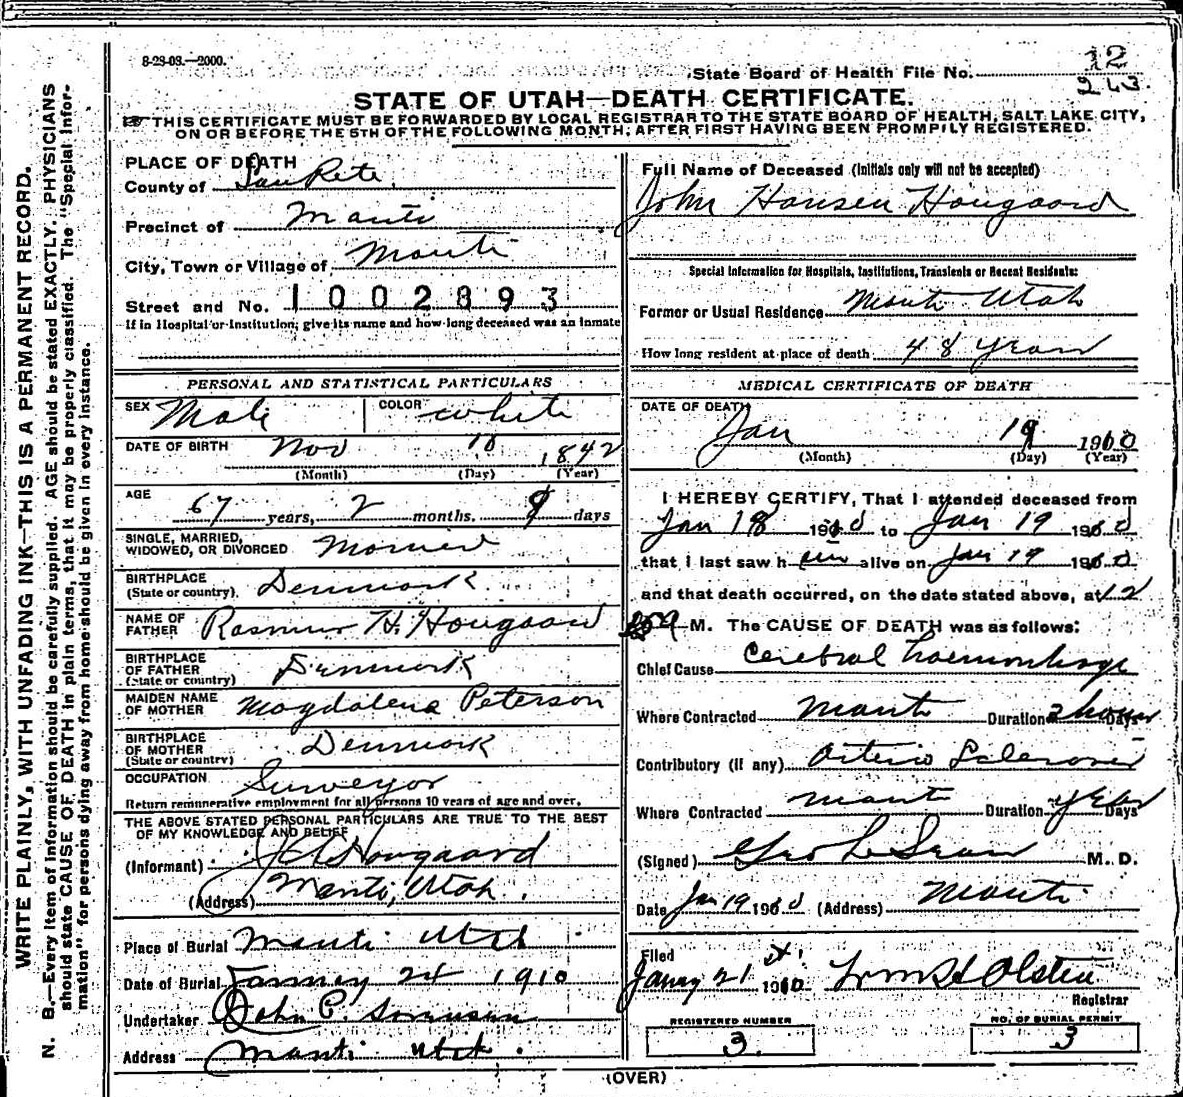 8-23-03.—2000.
State Board of Health File No. 12
243
STATE OF UTAH—DEATH CERTIFICATE.
THIS CERTIFICATE MUST BE FORWARDED BY LOCAL REGISTRAR TO THE STATE BOARD OF HEALTH, SALT LAKE CITY,
ON OR BEFORE THE 5TH OF THE FOLLOWING MONTH, AFTER FIRST HAVING BEEN PROMPTLY REGISTERED.
WRITE PLAINLY, WITH UNFADING INK—THIS IS A PERMANENT RECORD.
N. B.—Every item of information should be carefully supplied. AGE should be stated EXACTLY. PHYSICIANS
should state CAUSE OF DEATH in plain terms, that it may be properly classified. The "Special Infor-
mation" for persons dying away from home should be given in every instance.
PLACE OF DEATH
County of SanPete
Precinct of Manti
City, Town or Village of Manti
Street and No. 1002893
If in Hospital or Institution, give its name and how long deceased was an inmate
PERSONAL AND STATISTICAL PARTICULARS
SEX Male COLOR white
DATE OF BIRTH Nov 10 1842
(Month) (Day) (Year)
AGE
67 years, 2 months. 9 days
SINGLE, MARRIED,
WIDOWED, OR DIVORCED Married
BIRTHPLACE
(State or country) Denmark
NAME OF
FATHER Rasmus H. Hougaard
BIRTHPLACE
OF FATHER
(State or country) Denmark
MAIDEN NAME
OF MOTHER Magdalena Peterson
BIRTHPLACE
OF MOTHER
(State or country) Denmark
OCCUPATION Surveyor
Return remunerative employment for all persons 10 years of age and over.
THE ABOVE STATED PERSONAL PARTICULARS ARE TRUE TO THE BEST
OF MY KNOWLEDGE AND BELIEF
(Informant) Hougaard
(Address) Manti, Utah.
Place of Burial Manti Utah
Date of Burial January 24 1910
Undertaker John C. Sorensen
Address Manti Utah.
Full Name of Deceased (Initials only will not be accepted)
John Hansen Hougaard
Special Information for Hospitals, Institutions, Transients or Recent Residents:
Former or Usual Residence Manti Utah
How long resident at place of death 48 years
MEDICAL CERTIFICATE OF DEATH
DATE OF DEATH
Jan 19 1910
(Month) (Day) (Year)
I HEREBY CERTIFY, That I attended deceased from
Jan 18 1910 to Jan 19 1910
that I last saw him alive on Jan 19 1910
and that death occurred, on the date stated above, at 12
M. The CAUSE OF DEATH was as follows:
Chief Cause Cerebral haemorrhage
Where Contracted Manti Duration 2 hours Days
Contributory (if any) Arterio Sclerosis
Where Contracted Manti Duration years Days
(Signed) Geo L M. D.
Date Jan 19 1910 (Address) Manti
Filed
Janry 21st. 1910 Olsten
Registrar
REGISTERED NUMBER
3.
NO. OF BURIAL PERMIT
3
(OVER)